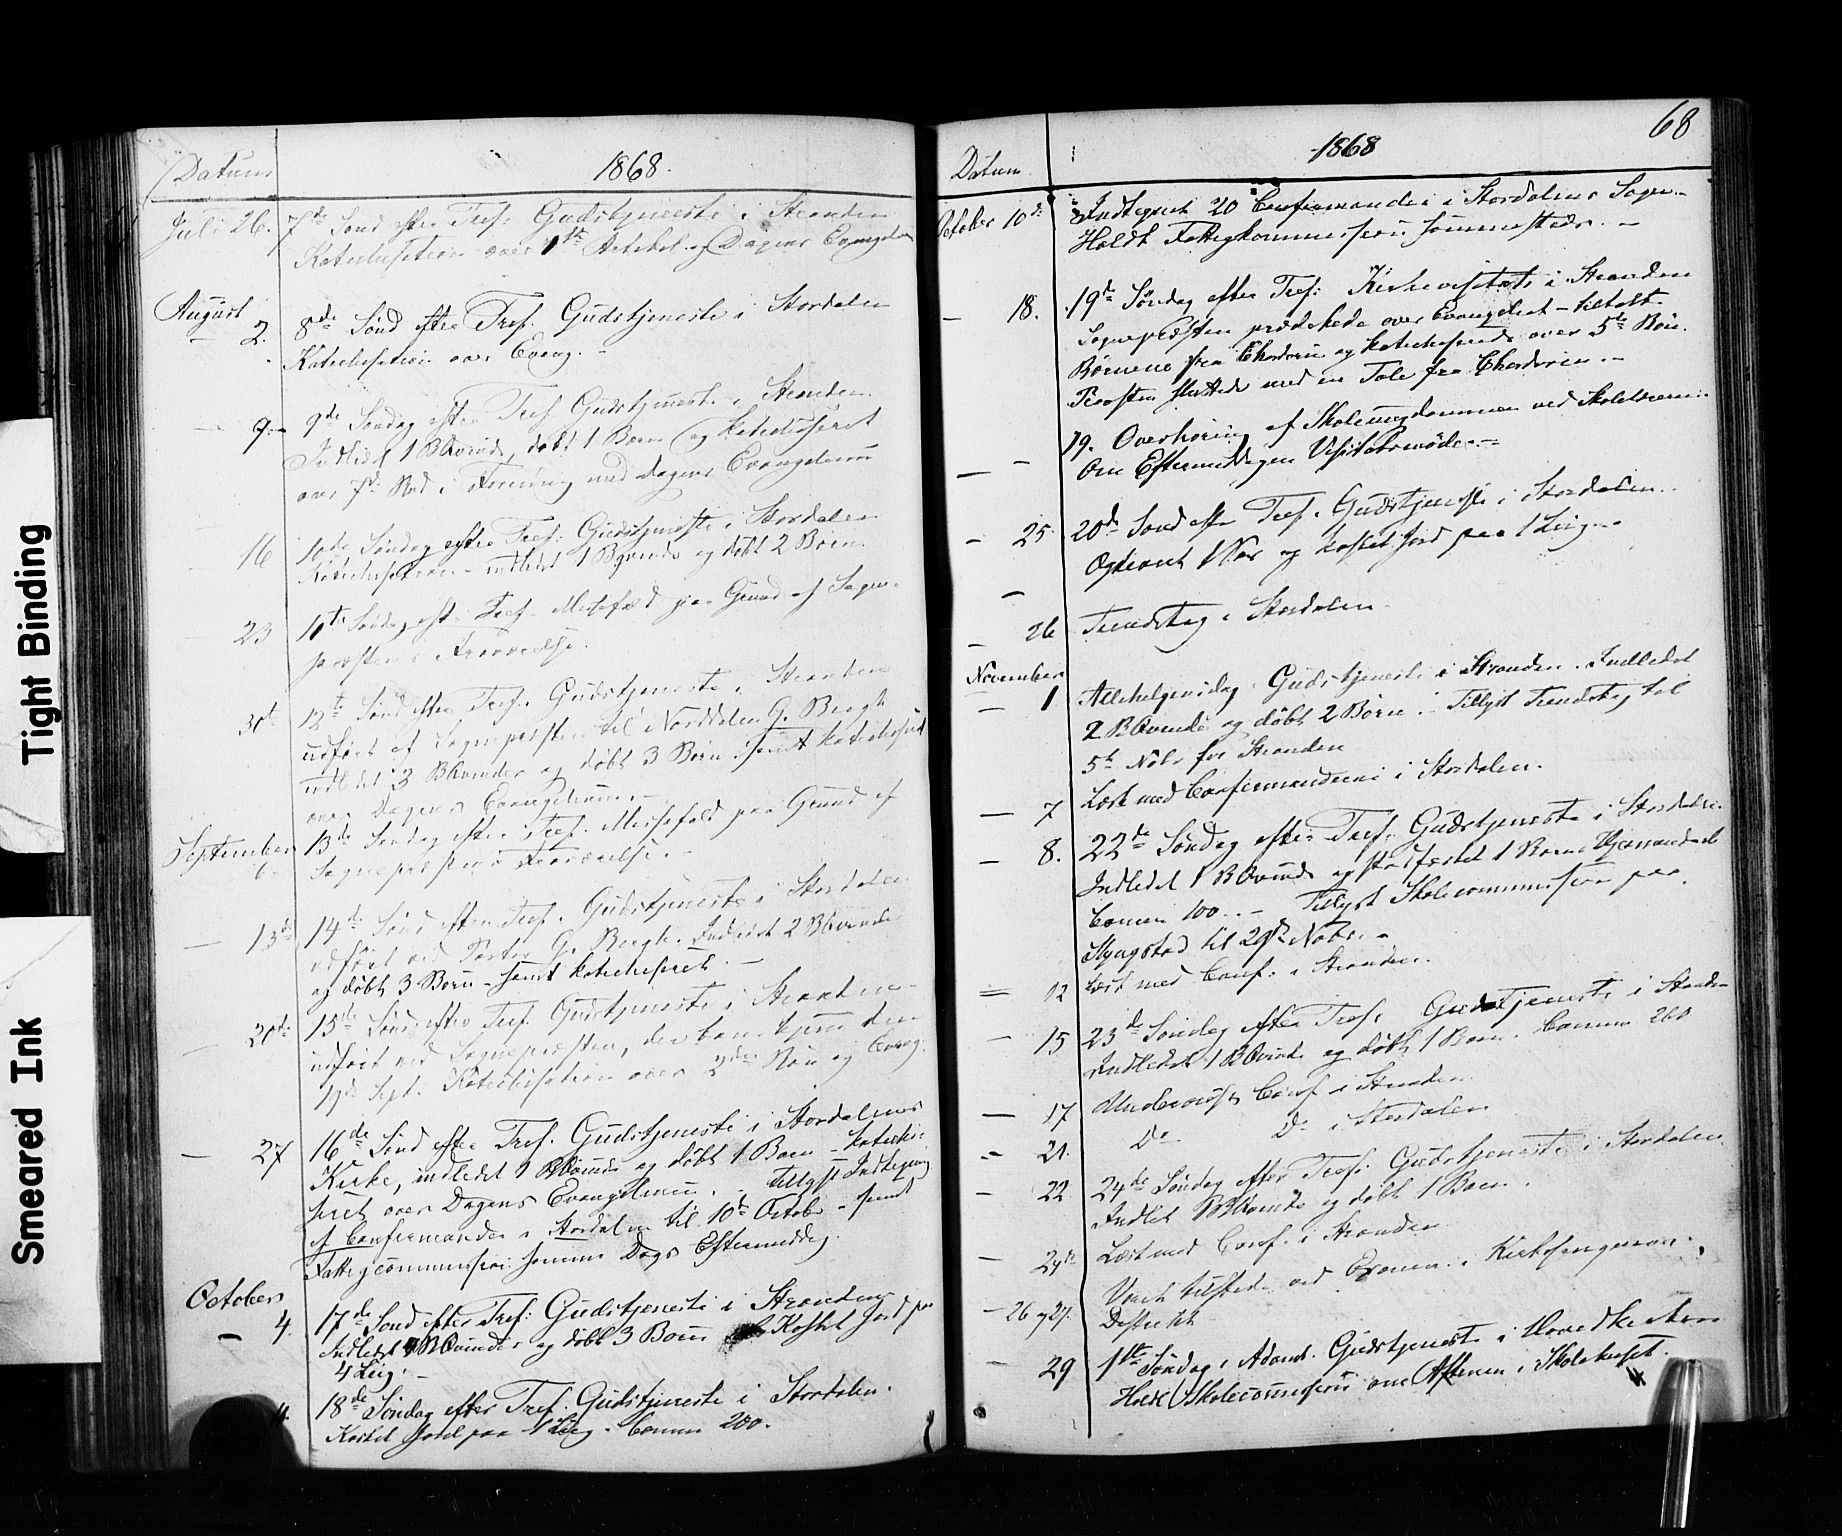 Datum
1868.
Juli 26. 7de Sønd efter Tref. Gudstjeneste i Stranden
Katechisation over 1ste Artikel og Dagens Evangelium
August
2. 8de Sønd efter Tref. Gudstjeneste i Stordalen
Katechisation over Evang. -
9. 9de Søndag efter Tref Gudstjeneste i Stranden
Indledet 1 BQvinde, døbt 1 Barn og katechiseret
over 7de Bud i Forening med Dagens Evangelium
16 10de Søndag efter Tref: Gudstjeneste i Stordalen
Katechisation - indledet 1 Bqvinde og døbt 2 Børn.
23 11te Søndag eft. Tref. Messefald paa Grund af Sogne-
præstens Fraværelse.
30te 12te Sønd efter Tref. Gudstjeneste i Stranden
udført af Sognepræsten til Norddalen G. Bergh
indledet 3 BQvinder og døbt 3 Børn samt katechiseret
over Dagens Evangelium. -
September
6. 13de Søndag efter Tref. Messefald paa Grund af
Sognepræstens Fraværelse. -
13de 14de Sønd efter Tref. Gudstjeneste i Stordalen
udført ved Pastor G. Bergh. Indledet 2 BQvinde
og døbt 3 Børn - samt katechiseret. -
20de 15de Sønd efter Tref. Gudstjeneste i Stranden -
udført ved Sognepræsten, der kom hjem den
19de Sept. Katechisation over 2den Bøn og Evang.
27 16de Sønd efter Tref. Gudstjeneste i Stordalens
Kirke, indledet 1 BQvinde og døbt 1 Barn - katechi-
seret over Dagens Evangelium. - Tillyst Indtegning
af Confirmander i Stordalen til 10de Octobr - samt
Fattigcommission samme Dags Eftermiddag.
October
4. 17de Sønd efter Tref: Gudstjeneste i Stranden
Indledet BQvinder og døbt 3 Børn Kastet Jord paa
4 Liig. -
11. 18de Søndag efter Tref. Gudstjeneste i Stordalen.
Kastet Jord paa 1 Liig. Comun 200.
68
Datum
1868
October 10de Indtegnet 20 Confirmander i Stordalens Sogn. -
Holdt Fattigkommission sammesteds. -
18. 19de Søndag efter Tref: Kirkevisitats i Stranden
Sognepræsten prædikede over Evangeliet - tiltalt
Børnene fra Chordøren og katechiserede over 5te Bøn.
Provsten sluttede med en Tale fra Chordøren. -
19. Overhøring af Skoleungdommen ved Skolelærerne
Om Eftermiddagen Visitatsmøde. -
25. 20de Sønd efter Tref. Gudstjeneste i Stordalen.
Ogviewet 1 Par og kastet Jord paa 1 Liig. -
26 Tiendetag i Stordalen.
November
1 Allehelgensdag Gudstjeneste i Stranden. Indledet
2 BQvinde og døbt 2 Børn. - Tillyst Tiendetag til
5te Nobr for Stranden
7 Læst med Confirmanderne i Stordalen.
8. 22de Søndag efter Tref. Gudstjeneste i Stordalen.
Indledet 1 BQvinde og stadfæstet 1 Barns Hjemmedaab
Comun 100. - Tillyst Skolecommission paa
til 29de Nobr. -
12 Læst med Conf. i Stranden.
15 23de Søndag efter Tref. Gudstjeneste i Stranden
Indledet 1 BQvinde og døbt 1 Barn. Comun 260
17 Underviist Conf i Stranden
21. Do Do i Stordalen
22. 24de Søndag efter Tref: Gudstjeneste i Stordalen
Indlet 1 BQvinde og døbt 1 Barn.
24de Læst med Conf. i Stranden
26 og 27. Været tilstede ved Examen i Kirkesangerens
Distrikt
29 1ste Søndag i Advent. Gudstjeneste i Hovedkirken
Holdt Skolecommission om Aftenen i Skolehuset.
Tight Binding
Smeared Ink